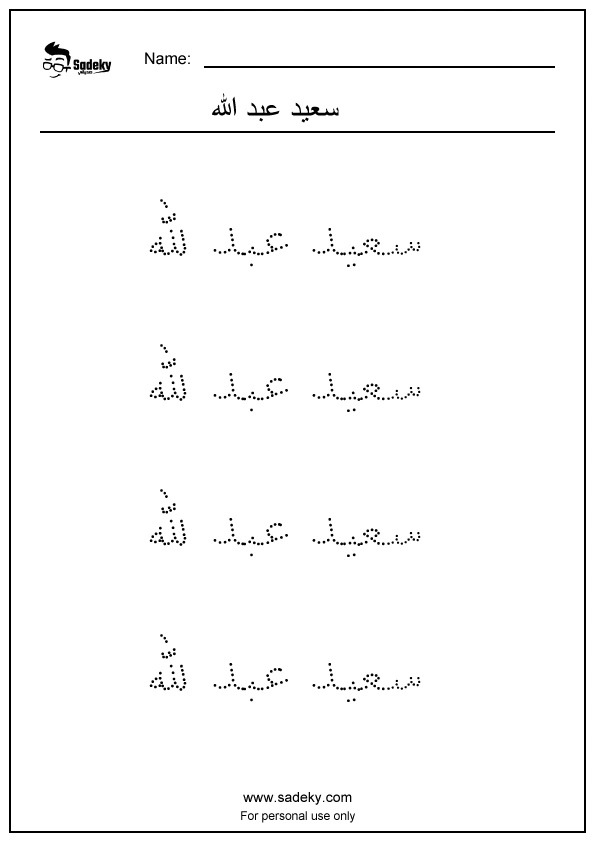 Sadeky
Name:
سعيد عبد الله
سعيد عبد لله
سعيد عبد لله
سعيد عبد لله
سعيد عبد لله
www.sadeky.com
For personal use only